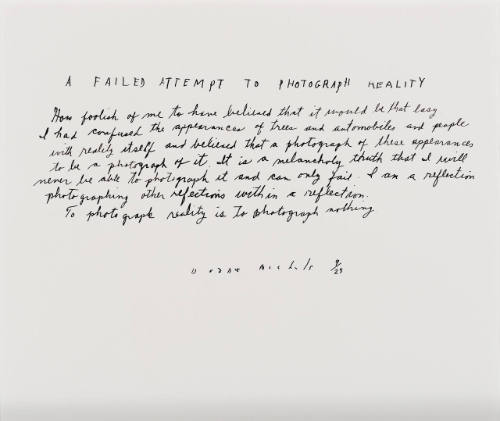 A FAILED ATTEMPT TO PHOTOGRAPH REALITY
How foolish of me to have believed that it would be that easy
I had confused the appearances of trees and automobiles and people
with reality itself and believed that a photograph of these appearances
to be a photograph of it. It is a melancholy truth that I will
never be able to photograph it and can only fail. I am a reflection
photographing other refections within a reflection.
To photograph reality is To photograph nothing
Duane Michals 9/25